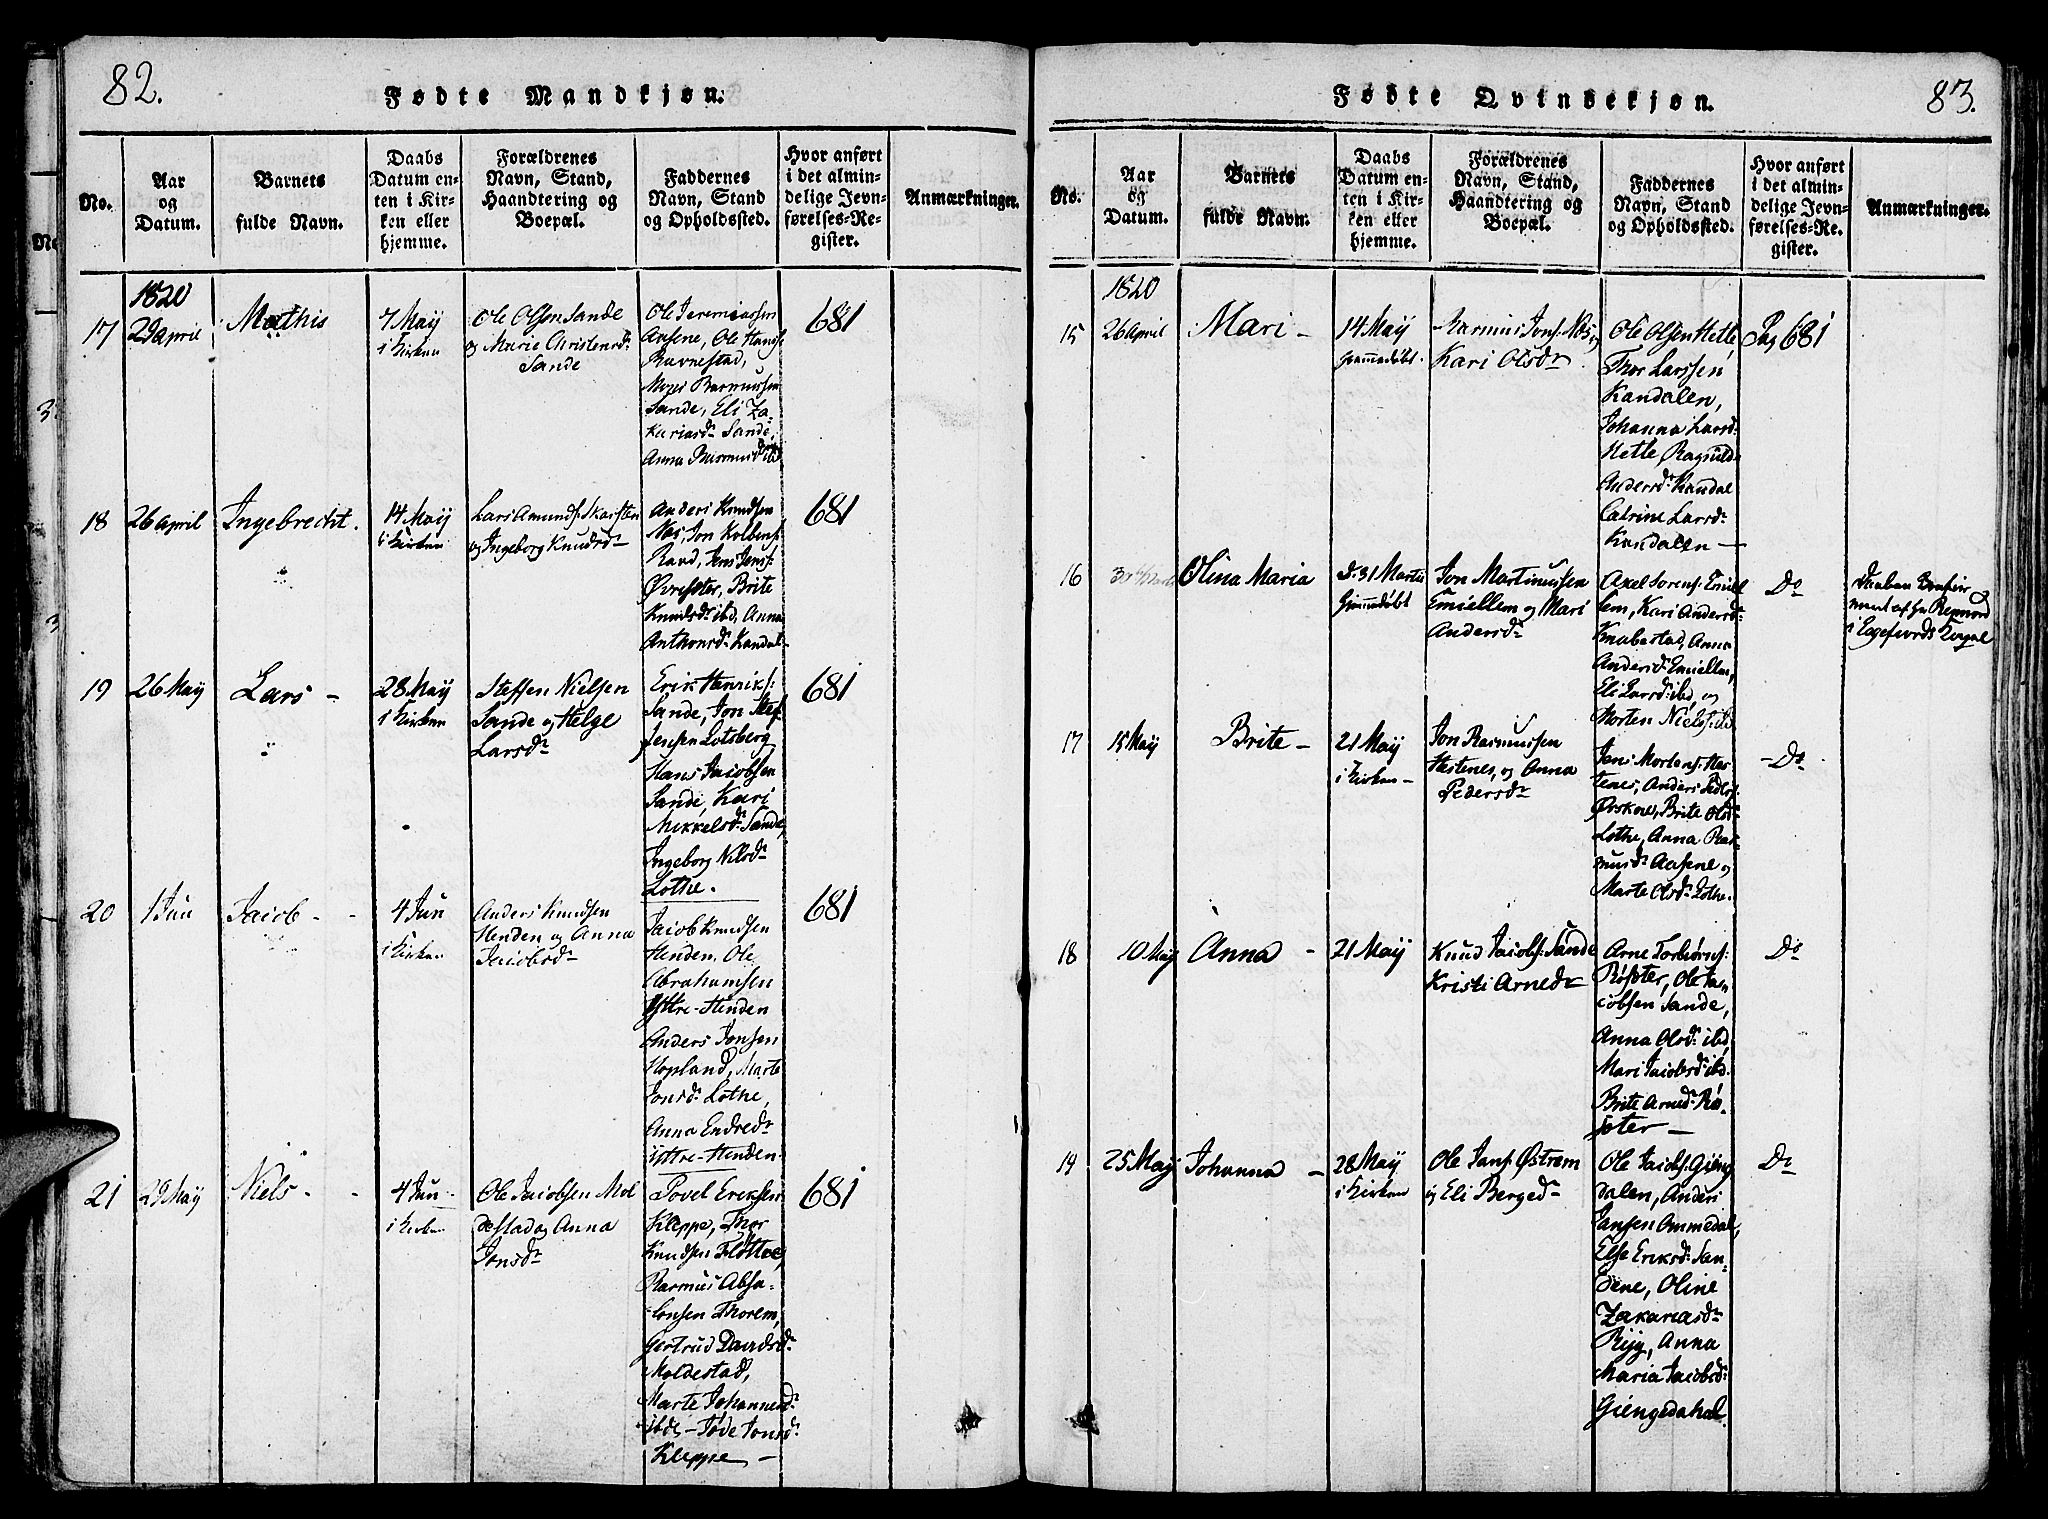 82.
Fødte Mandkjøn.
No.
Aar og Datum.
Barnets fulde Navn.
Daabs Datum enten i Kirken eller hjemme.
Forældrenes Navn, Stand, Haandtering og Boepæl.
Faddernes Navn, Stand og Opholdssted.
Hvor anført i det almindelige Jevnførelses-Register.
Anmærkninger.
1820
17
29 april
Mathis
7 May
i Kirken
Ole Olsen Sande
og Marie Christensdr
Sande
Ole Jeremiassen
Aasene, Ole Hans:
Ravnestad,
Moses Rasmussen
Sande, Eli Za-
kariasdr Sande,
Anna Rasmusdr ibd
681
18
26 april
Ingebrecht.
14 May
i Kirken
Lars Amunds: Skarsten
og Ingeborg Knudsdr
Anders Knudsen
Næs, Jon Kolbens:
Rand, Jens Jons:
Øvresæter, Brite
Knudsdr ibd, Anna
Anthonsdr Kandal-
681
19
26 May
Lars -
28 May
i Kirken
Steffen Nielsen
Sande og Helge
Larsdr
Erik Henriks:
Sande, Jon Stef-
Jensen Lotsberg
Hans Jacobsen
Sande, Kari
Mikkelsdr Sande,
Ingeborg Nilsdr
Lothe.
681
20
1 Jun
Jacob - -
4 Jun
i Kirken
Anders Knudsen
Henden og Anna
Jacobsdr
Jacob Knudsen
Henden, Ole
Abrahamsen
Yttre-Henden
Anders Jonsen
Hopland, Marte
Jonsdr Lothe,
Anna Endredr
ittre-Henden
681
21
29 May
Niels - -
4 Jun
i Kirken
Ole Jacobsen Mol
destad og Anna
Jonsdr
Povel Eriksen
Kleppe, Thor
Knudsen Fløtte,
Rasmus Absa-
lonsen Thorem,
Gertrud Davidsdr
Moldestad,
Marte Johannesdr
ibd - Jøde Jonsdr
Kleppe -
681
83.
Fødte Qvindekjøn.
No.
Aar og Datum.
Barnets fulde Navn.
Daabs Datum enten i Kirken eller hjemme.
Forældrenes Navn, Stand, Haandtering og Boepæl.
Faddernes Navn, Stand og Opholdssted.
Hvor anført i det almindelige Jevnførelses-Register.
Anmærkninger.
1820
15
26 april
Mari -
14 May
hjemmedøbt
Rasmus Jons: Næs og
Kari Olsdr
Ole Olsen Hette
Thor Larssen
Kandalen,
Johanna Larsd:
Hette, Ragnild
Andersdr Kandal
Catrine Larsdr
Kandalen -
Pag 681
16
Olina Maria
d. 31 Martii
hjemmedøbt
Jon Martinussen
Emiellem og Mari
Andersdr
Axel Sorens: Emiel
lem, Kari Andersdr
Knabestad, Anne
Andersdr Emiellem,
Eli Larsdr ibd, og
Morten Niels: ibd.
Do
Daaben Confir
meret af Hr
i Eegefiords Kapel
17
15 May
Brite -
21 May
i Kirken -
Jon Rasmussen
Hestenes, og Anna
Pedersdr
Jens Mortens: Hes-
tenes, Anders Peders:
Brite Olsdr
Lothe, Anna Ras-
musdr Aasene og
Marte Olsdr Lothe.
-Do
18
10 May
Anna -
21 May
Knud Jacobs: Sande
Kristi Arnedr
Arne Torbiørns:
Røsæter, Ole Ja-
cobsen Sande,
Anna Olsdr ibd,
Mari Jacobsdr ibd.
Brite Arnedr Rø-
sæter -
Do
19
25 May
Johanna -
28 May
i Kirken
Ole Jans: Østrem
og Eli Bergedr
Ole Jacobs: Gieng
dalen, Anders
Jansen Ommedal,
Else Eriksdr San-
dene, Oline
Zakariasdr
Ryg, Anna
Maria Jacobsdr
Giengedahal
Do